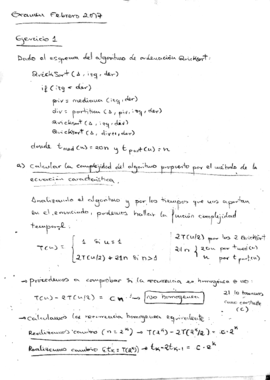 Examen Febrero 2017
Ejercicio 1
Dado el esquema del algoritmo de ordenación QuickSort:
QuickSort (A, izq, der)
if (izq < der)
piv = mediana (izq, der)
div = partition (A, piv, izq, der)
QuickSort (A, izq, div)
QuickSort (A, div+1, der)
donde t_med(n) = 20n y t_part(n) = n
a) Calcular la complejidad del algoritmo propuesto por el método de la
ecuación característica.
Analizando el algoritmo y por los tiempos que nos aportan
en el enunciado, podemos hallar la función complejidad
temporal:
T(n) = { 1 si n ≤ 1
2T(n/2) + 21n si n > 1
2T(n/2) por los 2 QuickSort
21n { 20n por t_med(n)
n por t_part(n)
→ procedemos a comprobar si la recurrencia es homogénea o no:
T(n) - 2T(n/2) = cn → no homogénea
21 lo tomamos
como constante
(c)
→ Calculamos la recurrencia homogénea equivalente:
Realizamos cambio (n = 2^k) → T(2^k) - 2T(2^k/2) = c·2^k
Realizamos cambio (t_k = T(2^k)) → t_k - 2t_k-1 = c·2^k